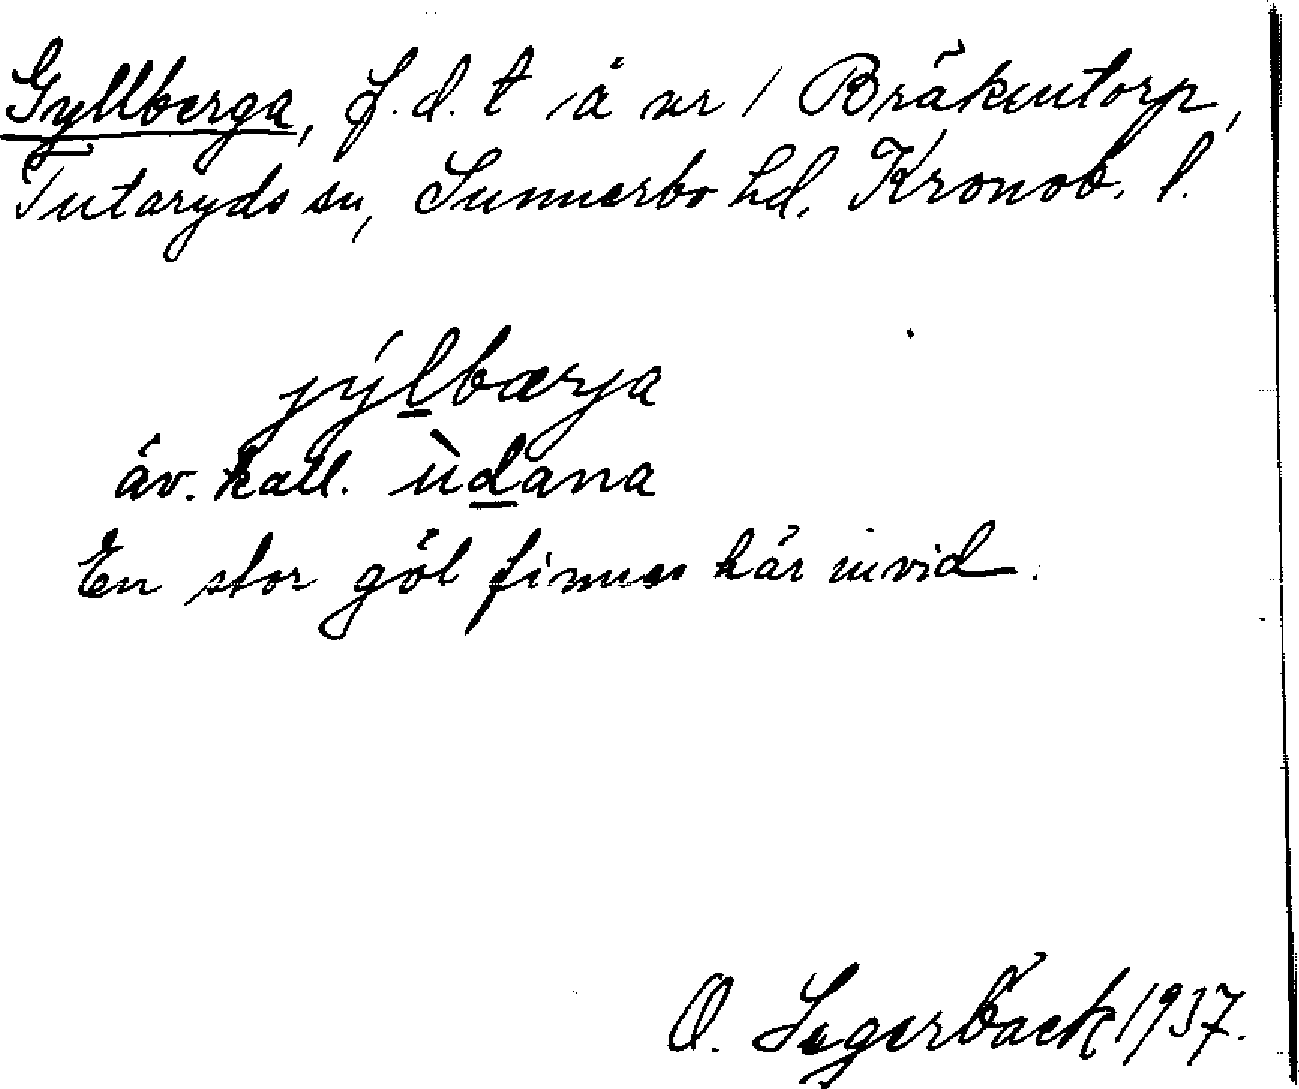 Gyllberga, f.d. t å nr 1 Bräkentorp,
Tutaryds sn, Sunnerbo hd. Kronob. l.
jýlbærja
äv. kall. ùdana
En stor göl finnes här invid.
O. Segerbäck 1937.